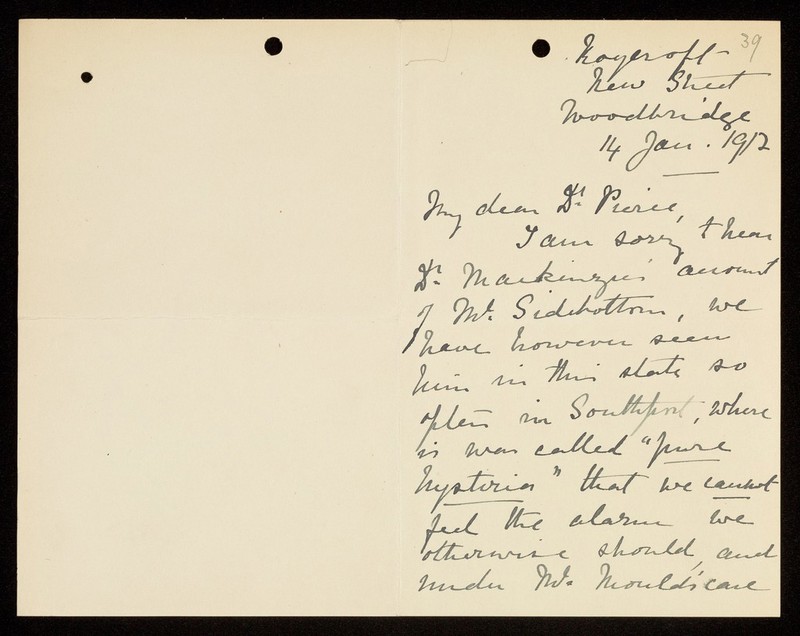 39
Roycroft
New Street
Woodbridge
14 Jan. 1912
My dear Dr Pierce,
I am sorry to hear
Dr. Mackenzie's account
of Mr. Sidebottom, we
have however seen
him in this state so
often in Southport, where
is was called "pure
hysteria" that we cannot
feel the alarm we
otherwise should, and
under Mr. Mould's care